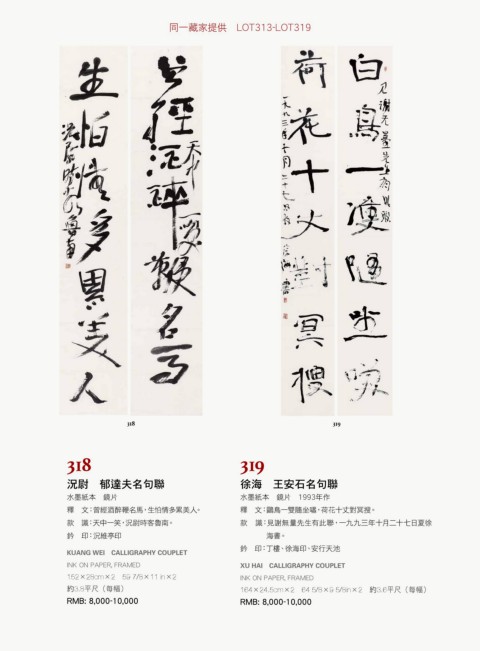 同一藏家提供 LOT313-LOT319
曾經酒醉鞭名馬
天中一笑
生怕情多累美人
況尉時客魯南
白鳥一雙隨坐嘯
見謝無量先生有此聯
荷花十丈對冥搜
一九九三年十月二十七日夏徐海書
318
319
318
況尉 郁達夫名句聯
水墨紙本 鏡片
釋 文：曾經酒醉鞭名馬，生怕情多累美人。
款 識：天中一笑，況尉時客魯南。
鈐 印：況維亭印
KUANG WEI CALLIGRAPHY COUPLET
INK ON PAPER, FRAMED
152×28cm×2 59 7/8×11 in×2
約3.8平尺（每幅）
RMB: 8,000-10,000
319
徐海 王安石名句聯
水墨紙本 鏡片 1993年作
釋 文：鷗鳥一雙隨坐嘯，荷花十丈對冥搜。
款 識：見謝無量先生有此聯，一九九三年十月二十七日夏徐
海書。
鈐 印：丁樓、徐海印、安行天池
XU HAI CALLIGRAPHY COUPLET
INK ON PAPER, FRAMED
164×24.5cm×2 64 5/8×9 5/8in×2 約3.6平尺（每幅）
RMB: 8,000-10,000